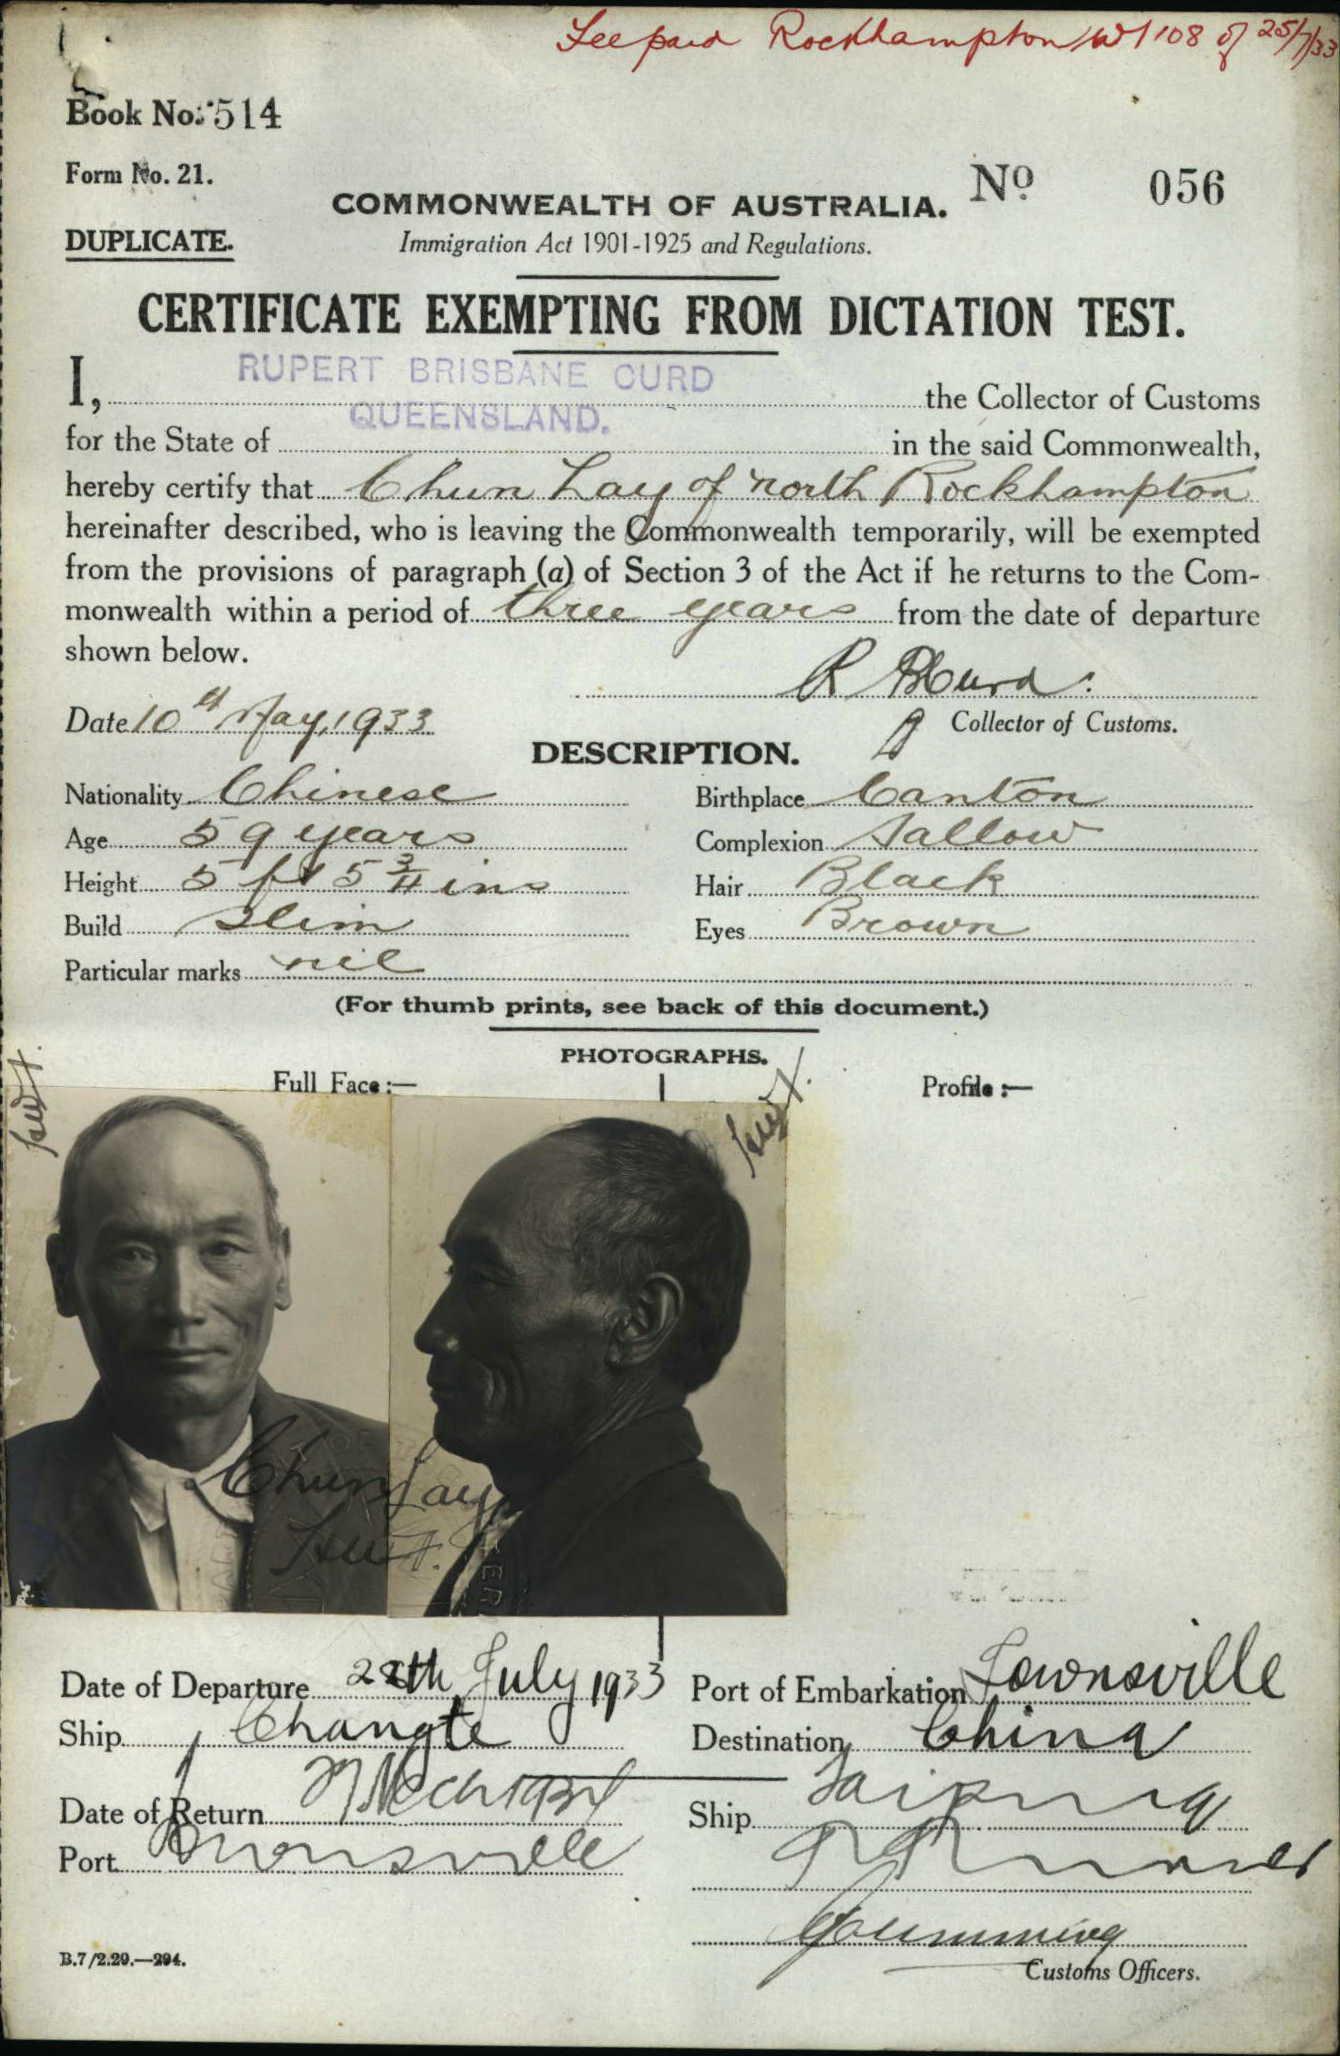 Fee paid Rockhampton 108 of 25/7/33
Book No. 514
Form No. 21.
COMMONWEALTH OF AUSTRALIA. No 056
DUPLICATE.
Immigration Act 1901-1925 and Regulations.
CERTIFICATE EXEMPTING FROM DICTATION TEST.
I, RUPERT BRISBANE CURD the Collector of Customs
for the State of QUEENSLAND. in the said Commonwealth,
hereby certify that Chun Lay of North Rockhampton
hereinafter described, who is leaving the Commonwealth temporarily, will be exempted
from the provisions of paragraph (a) of Section 3 of the Act if he returns to the Com-
monwealth within a period of three years from the date of departure
shown below.
R B Curd.
Date 10th May, 1933 Collector of Customs.
DESCRIPTION.
Nationality Chinese Birthplace Canton
Age 59 years Complexion Sallow
Height 5 ft 5 3/4 ins Hair Black
Build Slim Eyes Brown
Particular marks nil
(For thumb prints, see back of this document.)
PHOTOGRAPHS.
Full Face :— Profile :—
Chun Lay
Date of Departure 28th July 1933 Port of Embarkation Townsville
Ship Changte Destination China
Date of Return Ship Taiping
Port Townsville
Customs Officers.
B.7/2.29.—294.